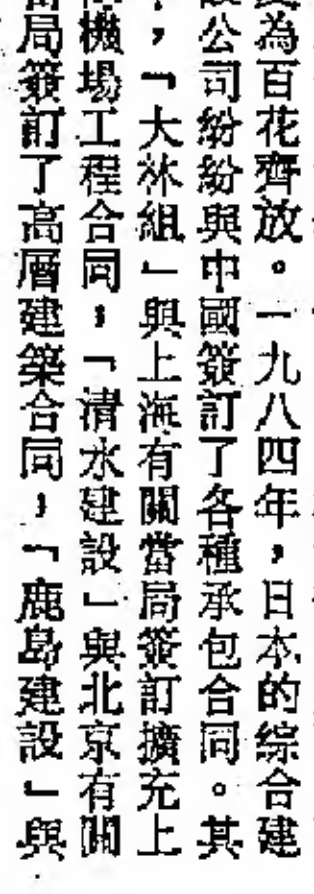 為百花齊放。一九八四年，日本的綜合建
公司紛紛與中國簽訂了各種承包合同。其
，「大林組」與上海有關當局簽訂擴充上
機場工程合同，「清水建設」與北京有關
局簽訂了高層建築合同，「鹿島建設」與